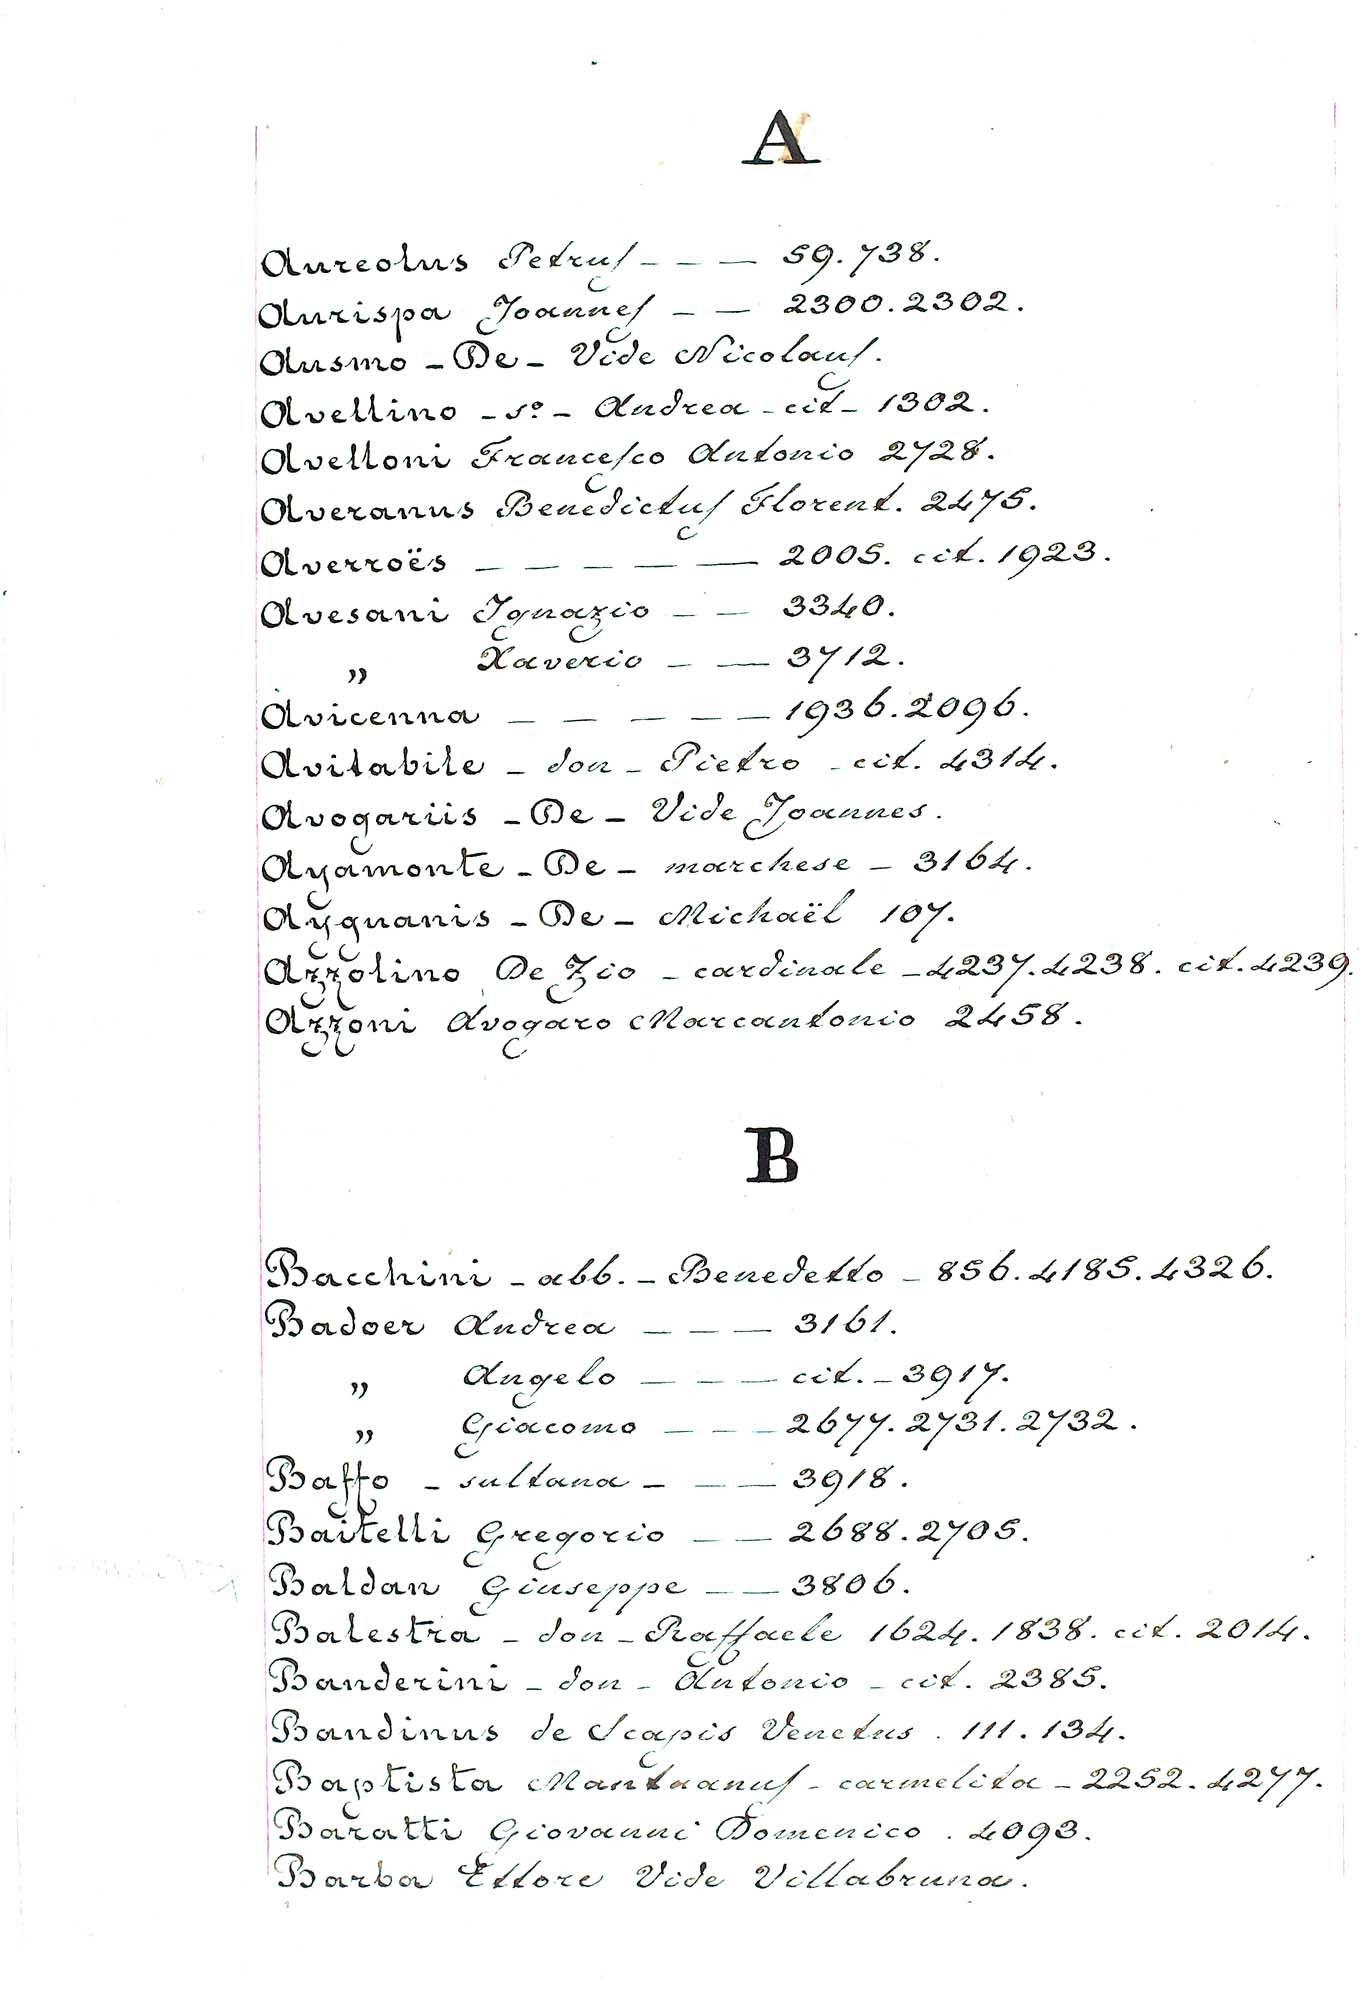 A
Aureolus Petrus _ _ _ 59. 738.
Aurispa Joannes _ _ 2300. 2302.
Ausmo _ De _ Vide Nicolaus.
Avellino _ sº _ Andrea _ cit _ 1302.
Avelloni Francesco Antonio 2728.
Averanus Benedictus Florent. 2475.
Averroës _ _ _ _ _ 2005. cit. 1923.
Avesani Ignazio _ _ 3340.
„ Xaverio _ _ 3712.
Avicenna _ _ _ _ _ 1936. 2096.
Avitabile _ don _ Pietro _ cit. 4314.
Avogariis _ De _ Vide Joannes.
Ayamonte _ De _ marchese _ 3164.
Aygnanis _ De _ Michaël 107.
Azzolino De Zio _ cardinale _ 4237. 4238. cit. 4239.
Azzoni Avogaro Marcantonio 2458.
B
Bacchini _ abb. _ Benedetto _ 856. 4185. 4326.
Badoer Andrea _ _ _ 3161.
„ Angelo _ _ _ cit. _ 3917.
„ Giacomo _ _ _ 2677. 2731. 2732.
Baffo _ sultana _ _ _ 3918.
Baitelli Gregorio _ _ 2688. 2705.
Baldan Giuseppe _ _ 3806.
Balestra _ don _ Raffaele 1624. 1838. cit. 2014.
Banderini _ don _ Antonio _ cit. 2385.
Bandinus de Scapis Venetus. 111. 134.
Baptista Mantuanus _ carmelita _ 2252. 4277.
Baratti Giovanni Domenico. 4093.
Barba Ettore Vide Villabruna.